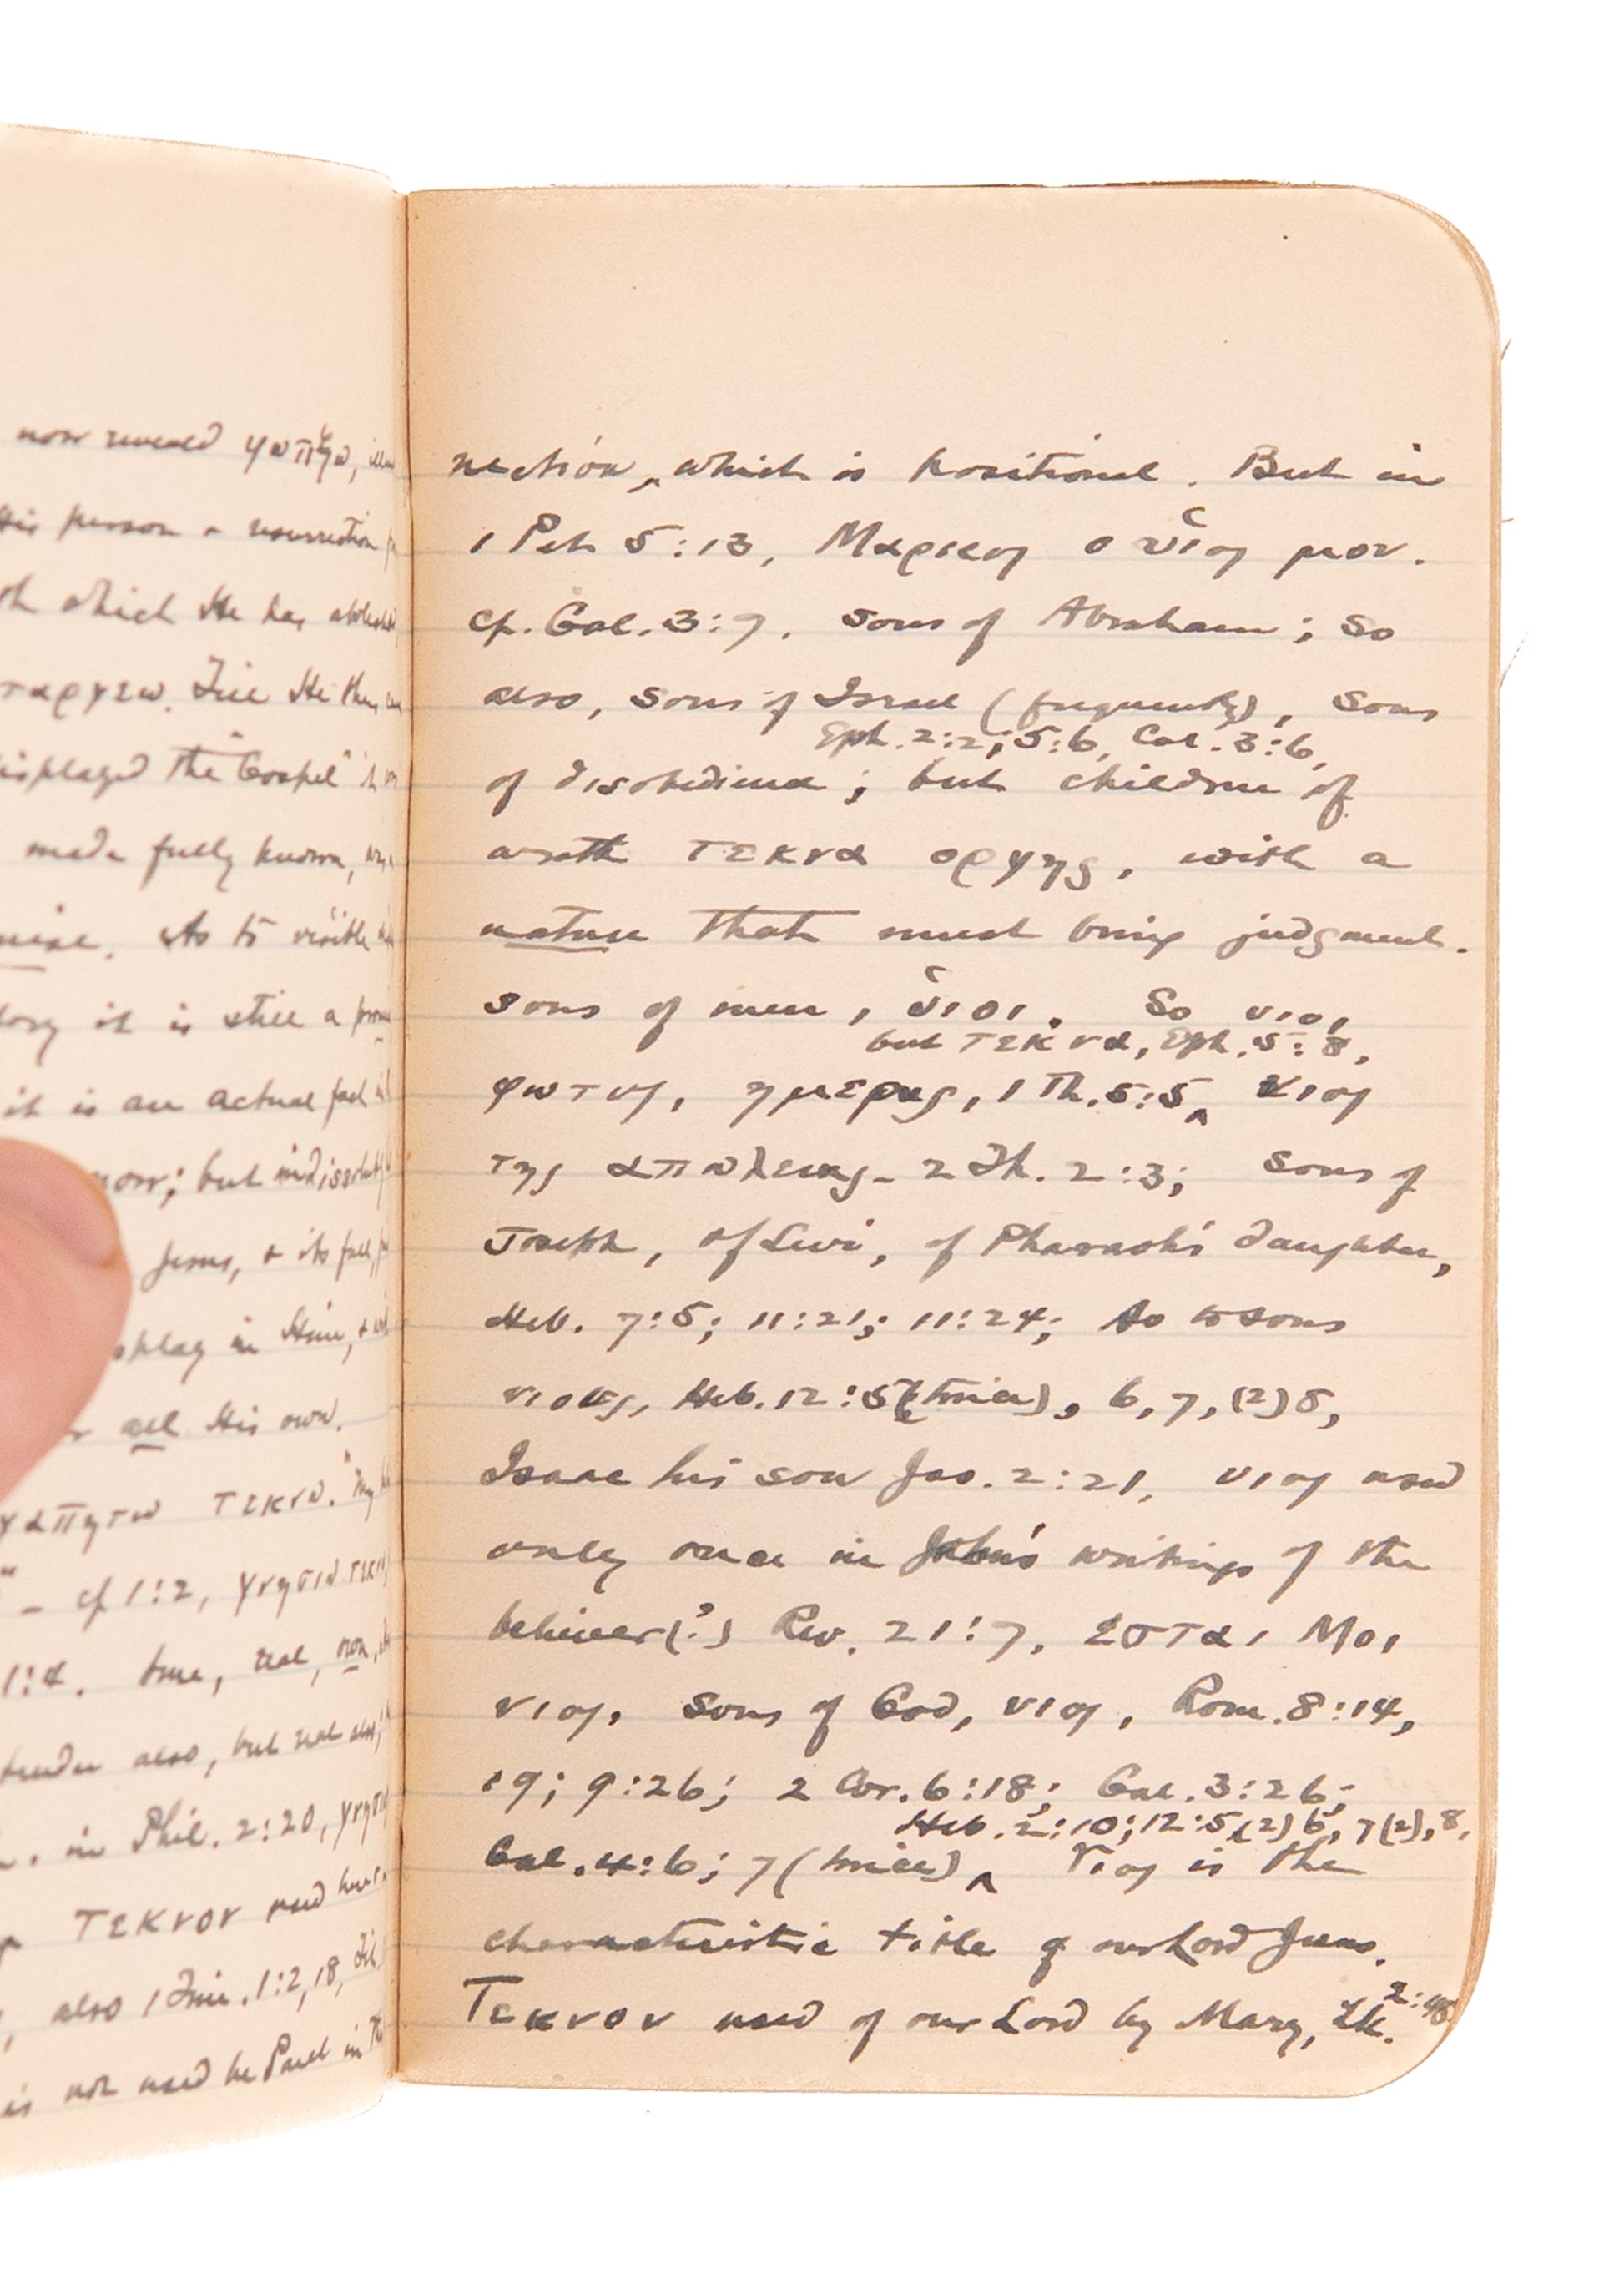 now revealed φωτιζω,
His person + resurrection
which He has
ταργεω. Till He then
displayed "the Gospel" it
made fully known,
. As to visible
it is still a
it is an actual fact
now; but indissolubly
Jesus, + its full
display in Him, +
all His own.
γαπητω τεκνω. "my
" – cf 1:2, γνησιω
1:4. true, real, own,
tender also, but real also,
. in Phil. 2:20,
τεκνον used
, also 1 Tim. 1:2, 18,
is not used by Paul in
nection, which is positional. But in
1 Pet 5:13, Μαρκος ο ὑιος μου.
cp. Gal. 3:7, sons of Abraham; so
also, sons of Israel (frequently), sons
Eph. 2:2; 5:6, Col. 3:6,
of disobedience; but children of
wrath τεκνα οργης, with a
nature that must bring judgment.
sons of men, ὑιοι. So υιοι
but τεκνα, Eph. 5:8,
φωτος, ημερας, 1 Th. 5:5 ‸ υιος
της απωλειας – 2 Th. 2:3; sons of
Joseph, of Levi, of Pharaoh's daughter,
Heb. 7:5; 11:21; 11:24; As to sons
υιους, Heb. 12:5 (twice), 6, 7, (2) 8,
Isaac his son Jas. 2:21, υιος used
only once in John's writings of the
believer (?) Rev. 21:7, εσται Μοι
υιος, sons of God, υιος, Rom. 8:14,
19; 9:26; 2 Cor. 6:18; Gal. 3:26;
Heb. 2:10; 12:5, (2) 6, 7 (2), 8,
Gal. 4:6; 7 (twice) ‸ Υιος is the
characteristic title of our Lord Jesus.
Τεκνον used of our Lord by Mary, Lk. 2:48